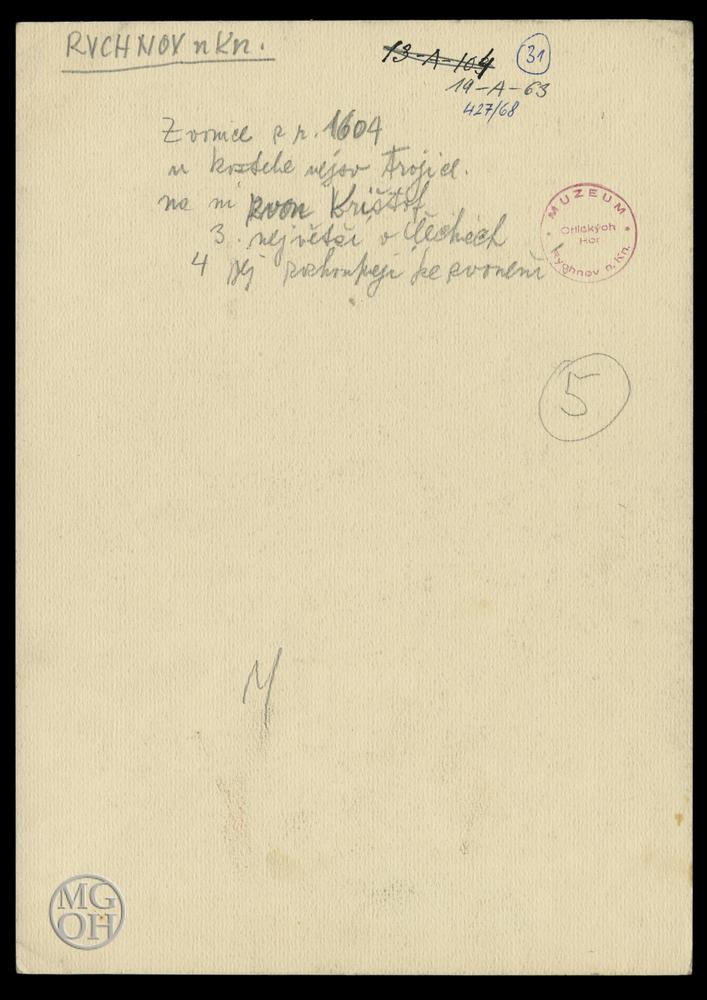 RYCHNOV n Kn.
13-A-104
31
19-A-63
427/68
Zvonice z r. 1604
u kostela nejsv Trojice.
na ní zvon Krištof
3. největší v Čechách
4 jej rozhoupají ke zvonění
MUZEUM
Orlických
Hor
Rychnov n. Kn.
5
MG
OH